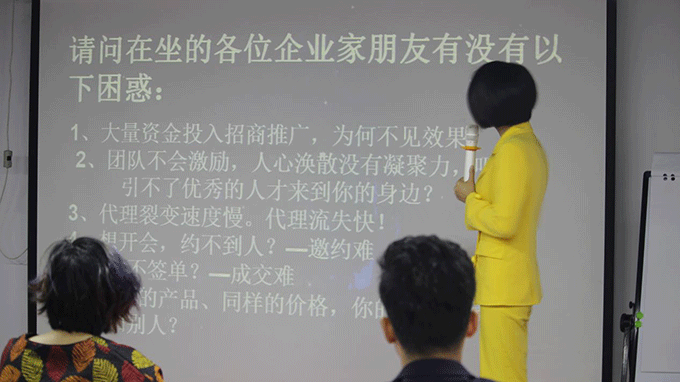 请问在坐的各位企业家朋友有没有以
下困惑：
1、大量资金投入招商推广，为何不见效果
2、团队不会激励，人心涣散没有凝聚力，
引不了优秀的人才来到你的身边？
3、代理裂变速度慢。代理流失快！
想开会，约不到人？—邀约难
不签单？—成交难
的产品、同样的价格，你的
别人？